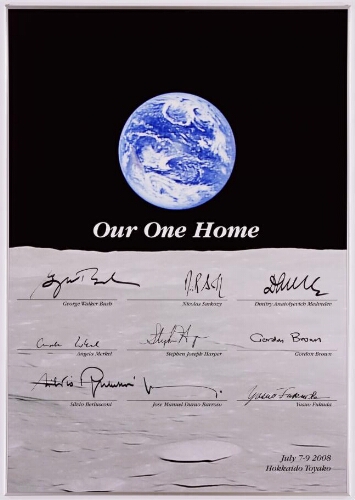 Our One Home
George Walker Bush
Nicolas Sarkozy
Dmitry Anatolyevich Medvedev
Angela Merkel
Stephen Joseph Harper
Gordon Brown
Gordon Brown
Silvio Berlusconi
José Manuel Durao Barroso
Yasuo Fukuda
Yasuo Fukuda
July 7-9 2008
Hokkaido Toyako